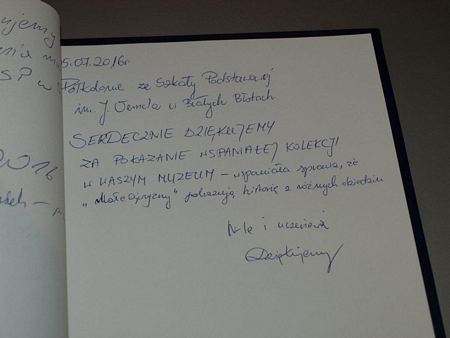 ujemy
SP w
2016
5.07.2016r
Półkolonie ze Szkoły Podstawowej
im. J. Verne'a w Białych Błotach
SERDECZNIE DZIĘKUJEMY
ZA POKAZANIE WSPANIAŁEJ KOLEKCJI
W WASZYM MUZEUM – wspaniała sprawa, że
„Małe Ojczyzny" pokazują historię z różnych obiedzin
N-le i uczniowie
Dziękujemy